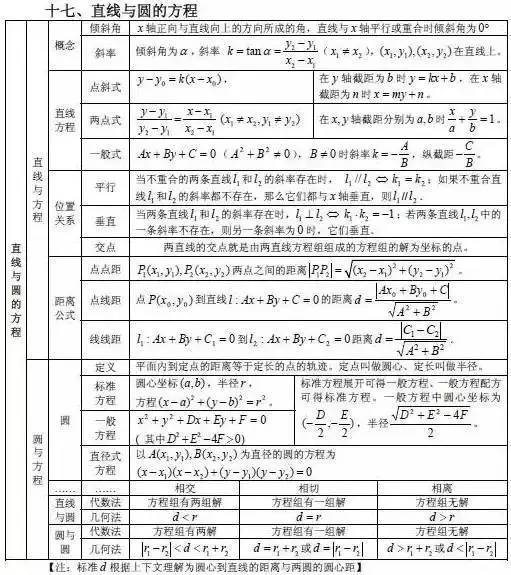 十七、直线与圆的方程
直线与圆的方程
直线与方程
概念
倾斜角
x轴正向与直线向上的方向所成的角，直线与x轴平行或重合时倾斜角为0°
斜率
倾斜角为α，斜率 k=tanα=(y₂-y₁)/(x₂-x₁)（x₁≠x₂），(x₁,y₁),(x₂,y₂)在直线上。
直线方程
点斜式
y-y₀=k(x-x₀)，
在y轴截距为b时y=kx+b。在x轴
截距为n时x=my+n。
两点式
(y-y₁)/(y₂-y₁)=(x-x₁)/(x₂-x₁) (x₁≠x₂,y₁≠y₂)
在x,y轴截距分别为a,b时x/a+y/b=1。
一般式
Ax+By+C=0（A²+B²≠0），B≠0时斜率k=-A/B，纵截距-C/B。
位置关系
平行
当不重合的两条直线l₁和l₂的斜率存在时，l₁//l₂⇔k₁=k₂；如果不重合直
线l₁和l₂的斜率都不存在，那么它们都与x轴垂直，则l₁//l₂．
垂直
当两条直线l₁和l₂的斜率存在时，l₁⊥l₂⇔k₁·k₂=-1；若两条直线l₁,l₂中的
一条斜率不存在，则另一条斜率为0时，它们垂直．
交点
两直线的交点就是由两直线方程组组成的方程组的解为坐标的点。
距离公式
点点距
P₁(x₁,y₁),P₂(x₂,y₂)两点之间的距离|P₁P₂|=√((x₂-x₁)²+(y₂-y₁)²)。
点线距
点P(x₀,y₀)到直线l:Ax+By+C=0的距离d=|Ax₀+By₀+C|/√(A²+B²)。
线线距
l₁:Ax+By+C₁=0到l₂:Ax+By+C₂=0距离d=|C₁-C₂|/√(A²+B²)．
圆与方程
圆
定义
平面内到定点的距离等于定长的点的轨迹。定点叫做圆心、定长叫做半径。
标准方程
圆心坐标(a,b)，半径r，
方程(x-a)²+(y-b)²=r²。
标准方程展开可得一般方程、一般方程配方
可得标准方程。一般方程中圆心坐标为
(-D/2,-E/2)，半径√(D²+E²-4F)/2。
一般方程
x²+y²+Dx+Ey+F=0
（其中D²+E²-4F>0）
直径式方程
以A(x₁,y₁),B(x₂,y₂)为直径的圆的方程为
(x-x₁)(x-x₂)+(y-y₁)(y-y₂)=0
…… …… 相交 相切 相离
直线与圆
代数法 方程组有两组解 方程组有一组解 方程组无解
几何法 d<r d=r d>r
圆与圆
代数法 方程组有两解 方程组有一组解 方程组无解
几何法 |r₁-r₂|<d<r₁+r₂ d=r₁+r₂或d=|r₁-r₂| d>r₁+r₂或d<|r₁-r₂|
【注：标准d根据上下文理解为圆心到直线的距离与两圆的圆心距】